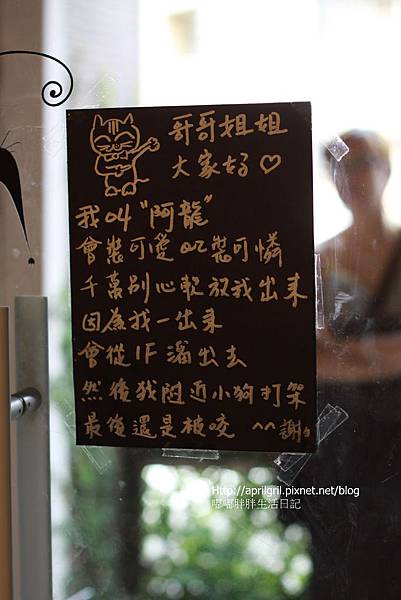 哥哥姐姐
大家好♡
我叫"阿龍"
會裝可愛or裝可憐
千萬別心軟放我出來
因為我一出來
會從1F溜出去
然後找附近小狗打架
最後還是被咬 ^^謝謝
Http://aprilgril.pixnet.net/blog
嘟嘟胖胖生活日記